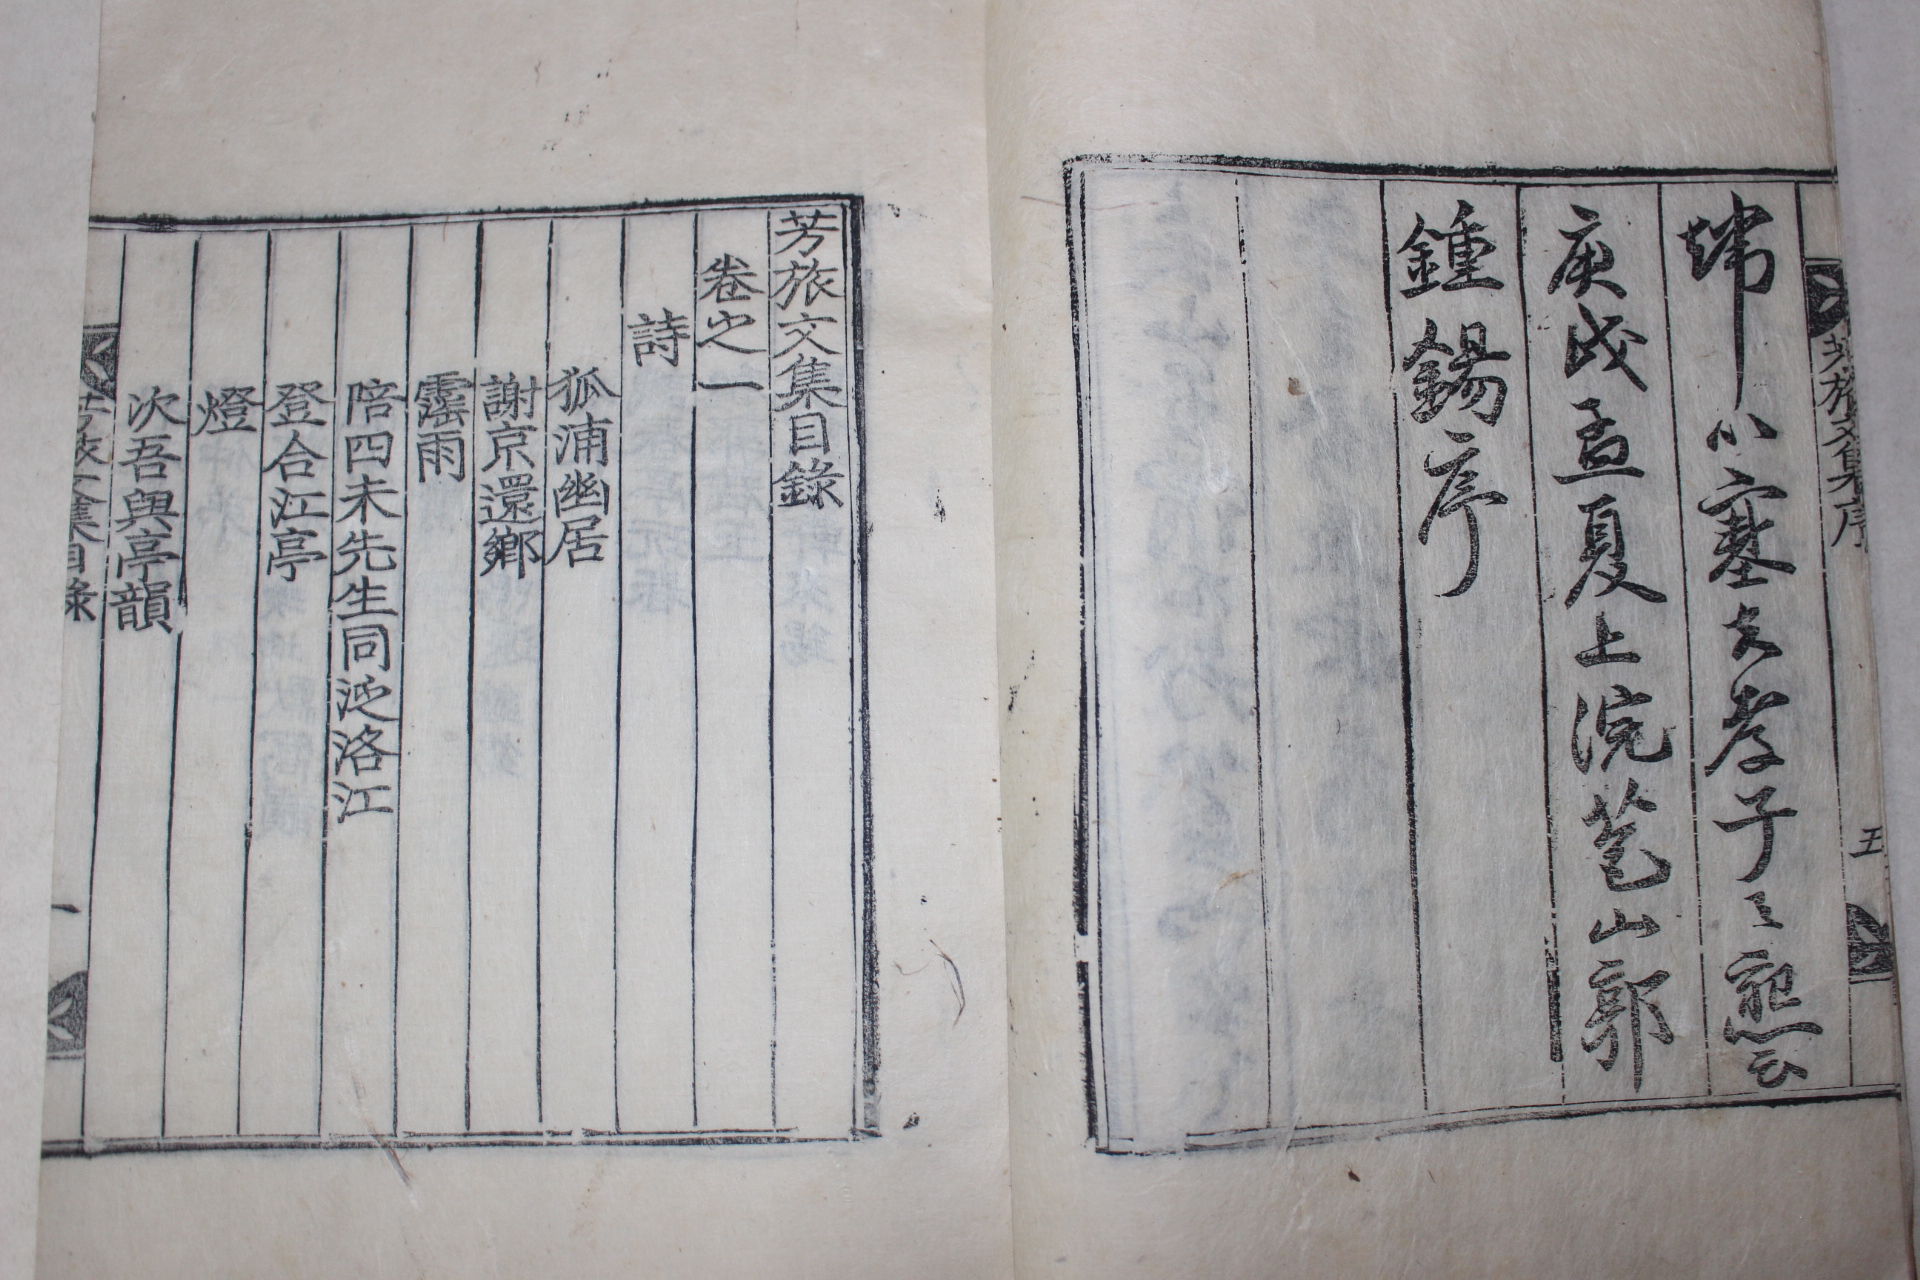 以塞夫孝子之懇云
庚戌孟夏上浣苞山郭
鍾錫序
芳旅文集序
五
芳旅文集目錄
卷之一
詩
狐浦幽居
謝京還鄉
霪雨
陪四未先生同泛洛江
登合江亭
燈
次吾與亭韻
芳旅文集目錄
一